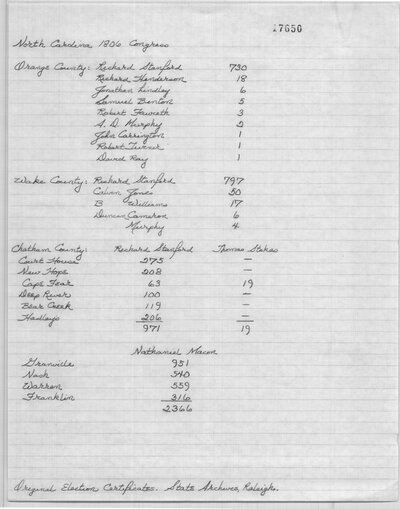 17650
North Carolina 1806 Congress
Orange County: Richard Stanford 730
Richard Henderson 18
Jonathan Lindley 6
Samuel Benton 5
Robert Fawceth 3
A. D. Murphy 2
John Carrington 1
Robert Turner 1
David Ray 1
Wake County: Richard Stanford 797
Calvin Jones 50
B Williams 17
Duncan Cameron 6
Murphy 4
Chatham County: Richard Stanford Thomas Stokes
Court House 275 —
New Hope 208 —
Cape Fear 63 19
Deep River 100 —
Bear Creek 119 —
Hadleys 206 —
971 19
Nathaniel Macon
Granville 951
Nash 540
Warren 559
Franklin 316
2366
Original Election Certificates. State Archives, Raleigh.